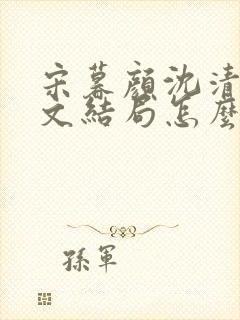 宋暮顏沈清
文結局怎麼
孫軍